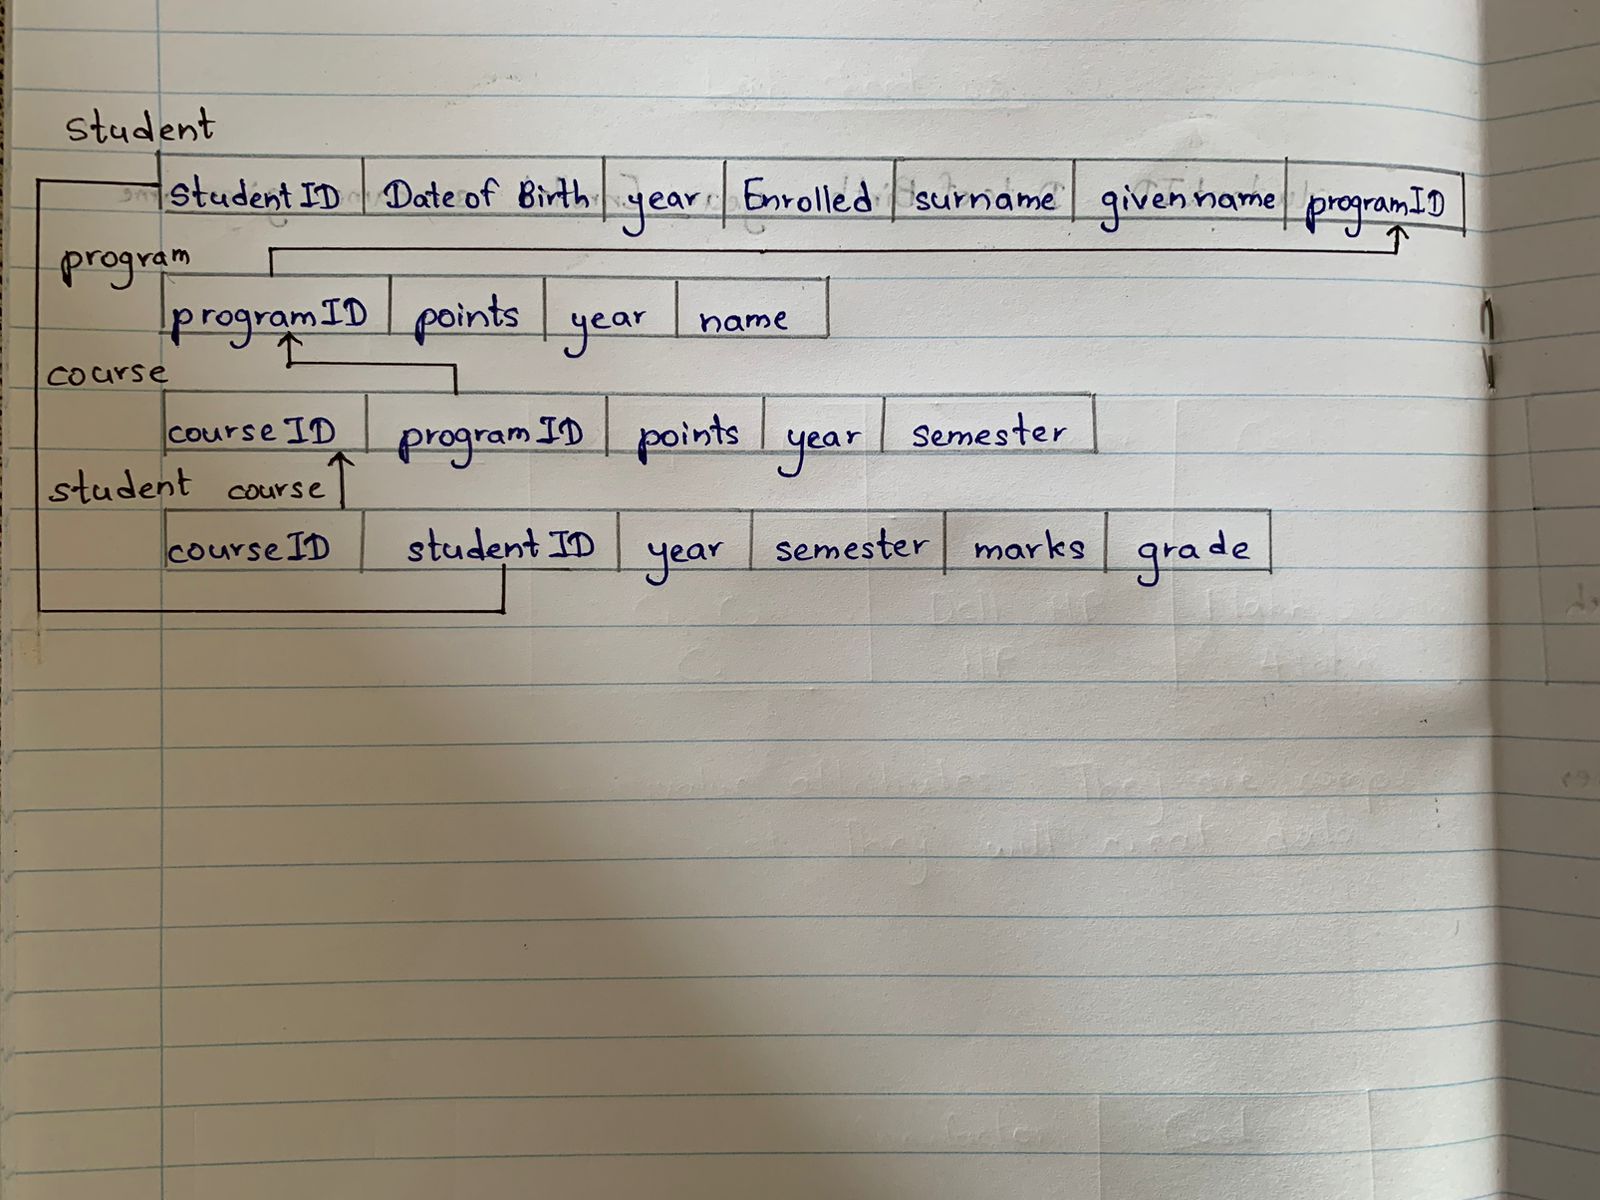 student
student ID Date of Birth year Enrolled surname given name programID
program
programID points year name
course
course ID program ID points year semester
student course
course ID student ID year semester marks grade